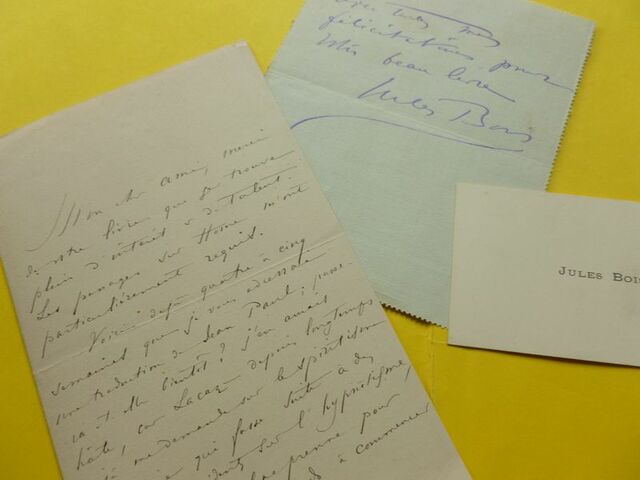 Mon cher ami, merci
de votre livre que je trouve
plein d'intérêt & de talent.
Les passages sur Home m'ont
particulièrement requis.
Voici déjà quatre à cinq
semaines que je vous adressais
une traduction de Jean Paul; passe-
ra-t-elle bientôt? J'en aurais
hâte, car depuis longtemps
me demande sur le spiritisme
qui fasse suite à des
sur l'hypnotisme,
prenne pour
à commencer
mes
félicitations pour
votre beau livre
Jules Bois
JULES BOIS